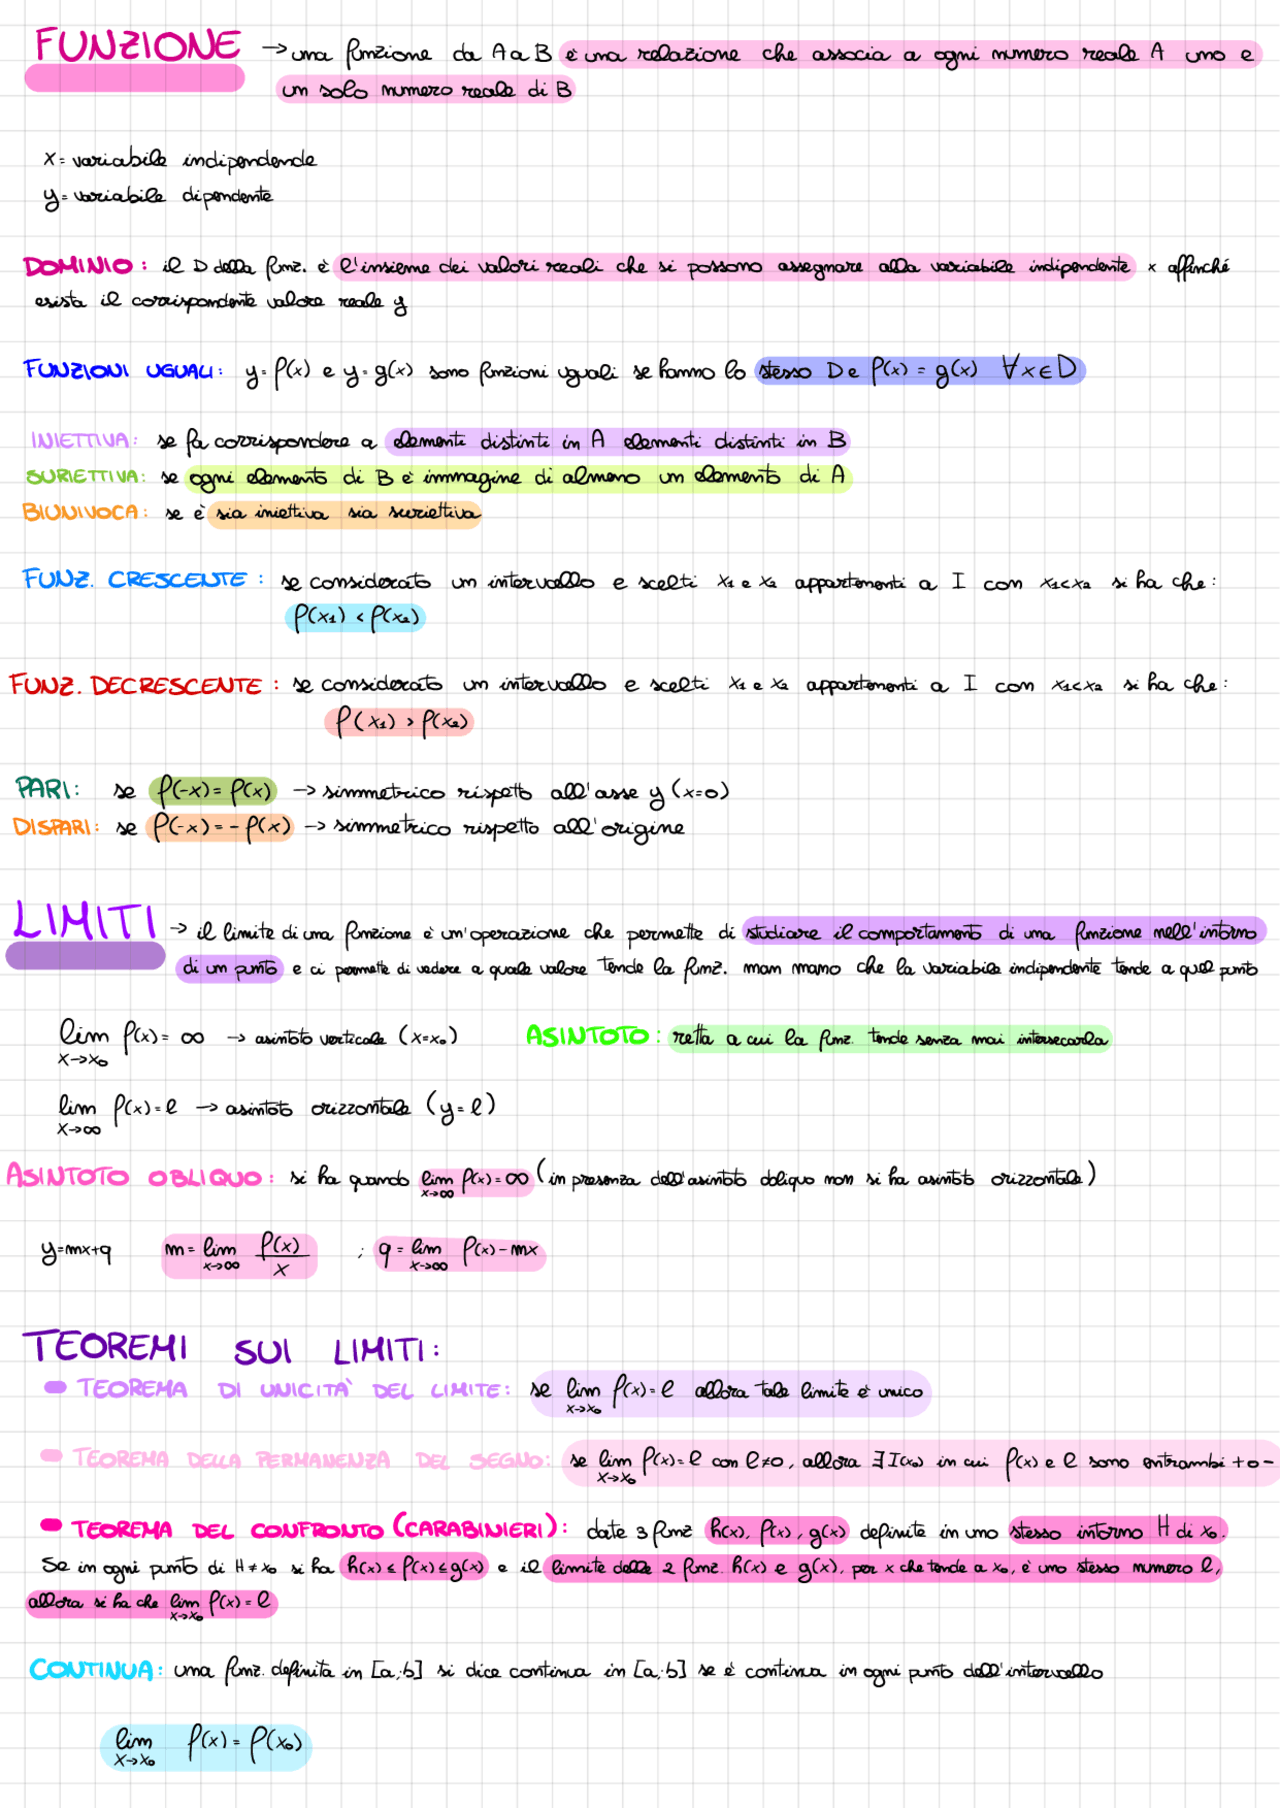 FUNZIONE → una funzione da A a B è una relazione che associa a ogni numero reale A uno e
un solo numero reale di B
x = variabile indipendende
y = variabile dipendente
DOMINIO: il D della funz. è l'insieme dei valori reali che si possono assegnare alla variabile indipendente x affinché
esista il corrispondente valore reale y
FUNZIONI UGUALI: y = f(x) e y = g(x) sono funzioni uguali se hanno lo stesso D e f(x) = g(x) ∀x∈D
INIETTIVA: se fa corrispondere a elementi distinti in A elementi distinti in B
SURIETTIVA: se ogni elemento di B è immagine di almeno un elemento di A
BIUNIVOCA: se è sia iniettiva sia suriettiva
FUNZ. CRESCENTE: se considerato un intervallo e scelti x₁ e x₂ appartenenti a I con x₁<x₂ si ha che:
f(x₁) < f(x₂)
FUNZ. DECRESCENTE: se considerato un intervallo e scelti x₁ e x₂ appartenenti a I con x₁<x₂ si ha che:
f(x₁) > f(x₂)
PARI: se f(-x) = f(x) → simmetrico rispetto all'asse y (x=0)
DISPARI: se f(-x) = - f(x) → simmetrico rispetto all'origine
LIMITI → il limite di una funzione è un'operazione che permette di studiare il comportamento di una funzione nell'intorno
di un punto e ci permette di vedere a quale valore tende la funz. man mano che la variabile indipendente tende a quel punto
lim f(x) = ∞ → asintoto verticale (x=x₀) ASINTOTO: retta a cui la funz. tende senza mai intersecarla
x→x₀
lim f(x) = l → asintoto orizzontale (y = l)
x→∞
ASINTOTO OBLIQUO: si ha quando lim f(x) = ∞ (in presenza dell'asintoto obliquo non si ha asintoto orizzontale)
x→∞
y=mx+q m = lim f(x)/x ; q = lim f(x) - mx
x→∞ x→∞
TEOREMI SUI LIMITI:
TEOREMA DI UNICITÀ DEL LIMITE: se lim f(x) = l allora tale limite è unico
x→x₀
TEOREMA DELLA PERMANENZA DEL SEGNO: se lim f(x) = l con l≠0, allora ∃ I(x₀) in cui f(x) e l sono entrambi + o -
x→x₀
TEOREMA DEL CONFRONTO (CARABINIERI): date 3 funz h(x), f(x), g(x) definite in uno stesso intorno H di x₀.
Se in ogni punto di H ≠ x₀ si ha h(x) ≤ f(x) ≤ g(x) e il limite delle 2 funz. h(x) e g(x), per x che tende a x₀, è uno stesso numero l,
allora si ha che lim f(x) = l
x→x₀
CONTINUA: una funz. definita in [a;b] si dice continua in [a;b] se è continua in ogni punto dell'intervallo
lim f(x) = f(x₀)
x→x₀